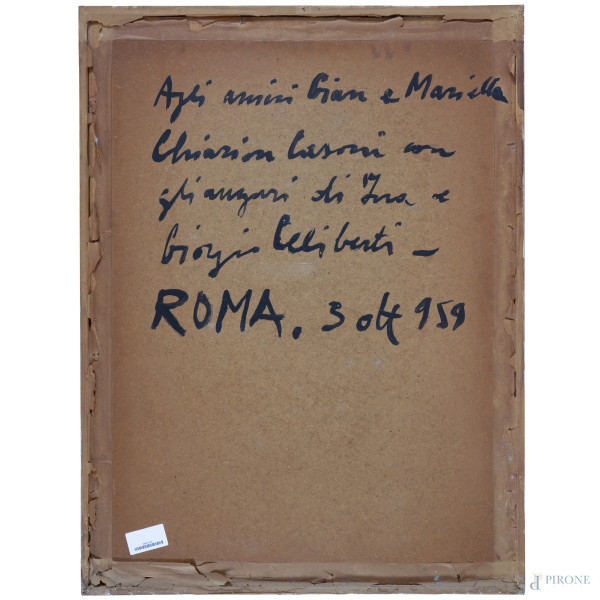 Agli amici Gian e Mariella
Chiarion Casoni con
gli auguri di Ina e
Giorgio Celiberti —
ROMA. 3 ott 959
PIRONE